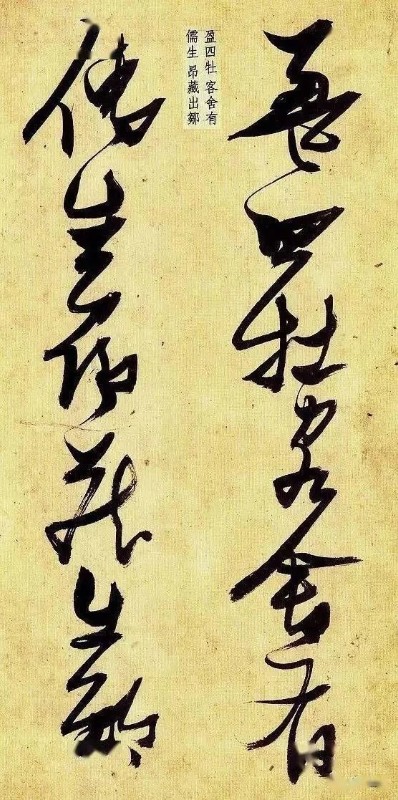 盈四牡客舍有
儒生昂藏出鄒
盈四牡 客舍有
儒生 昂藏出鄒